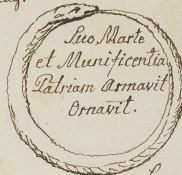 Suo Marte
et Munificentia
Patriam Armavit
Ornavit.